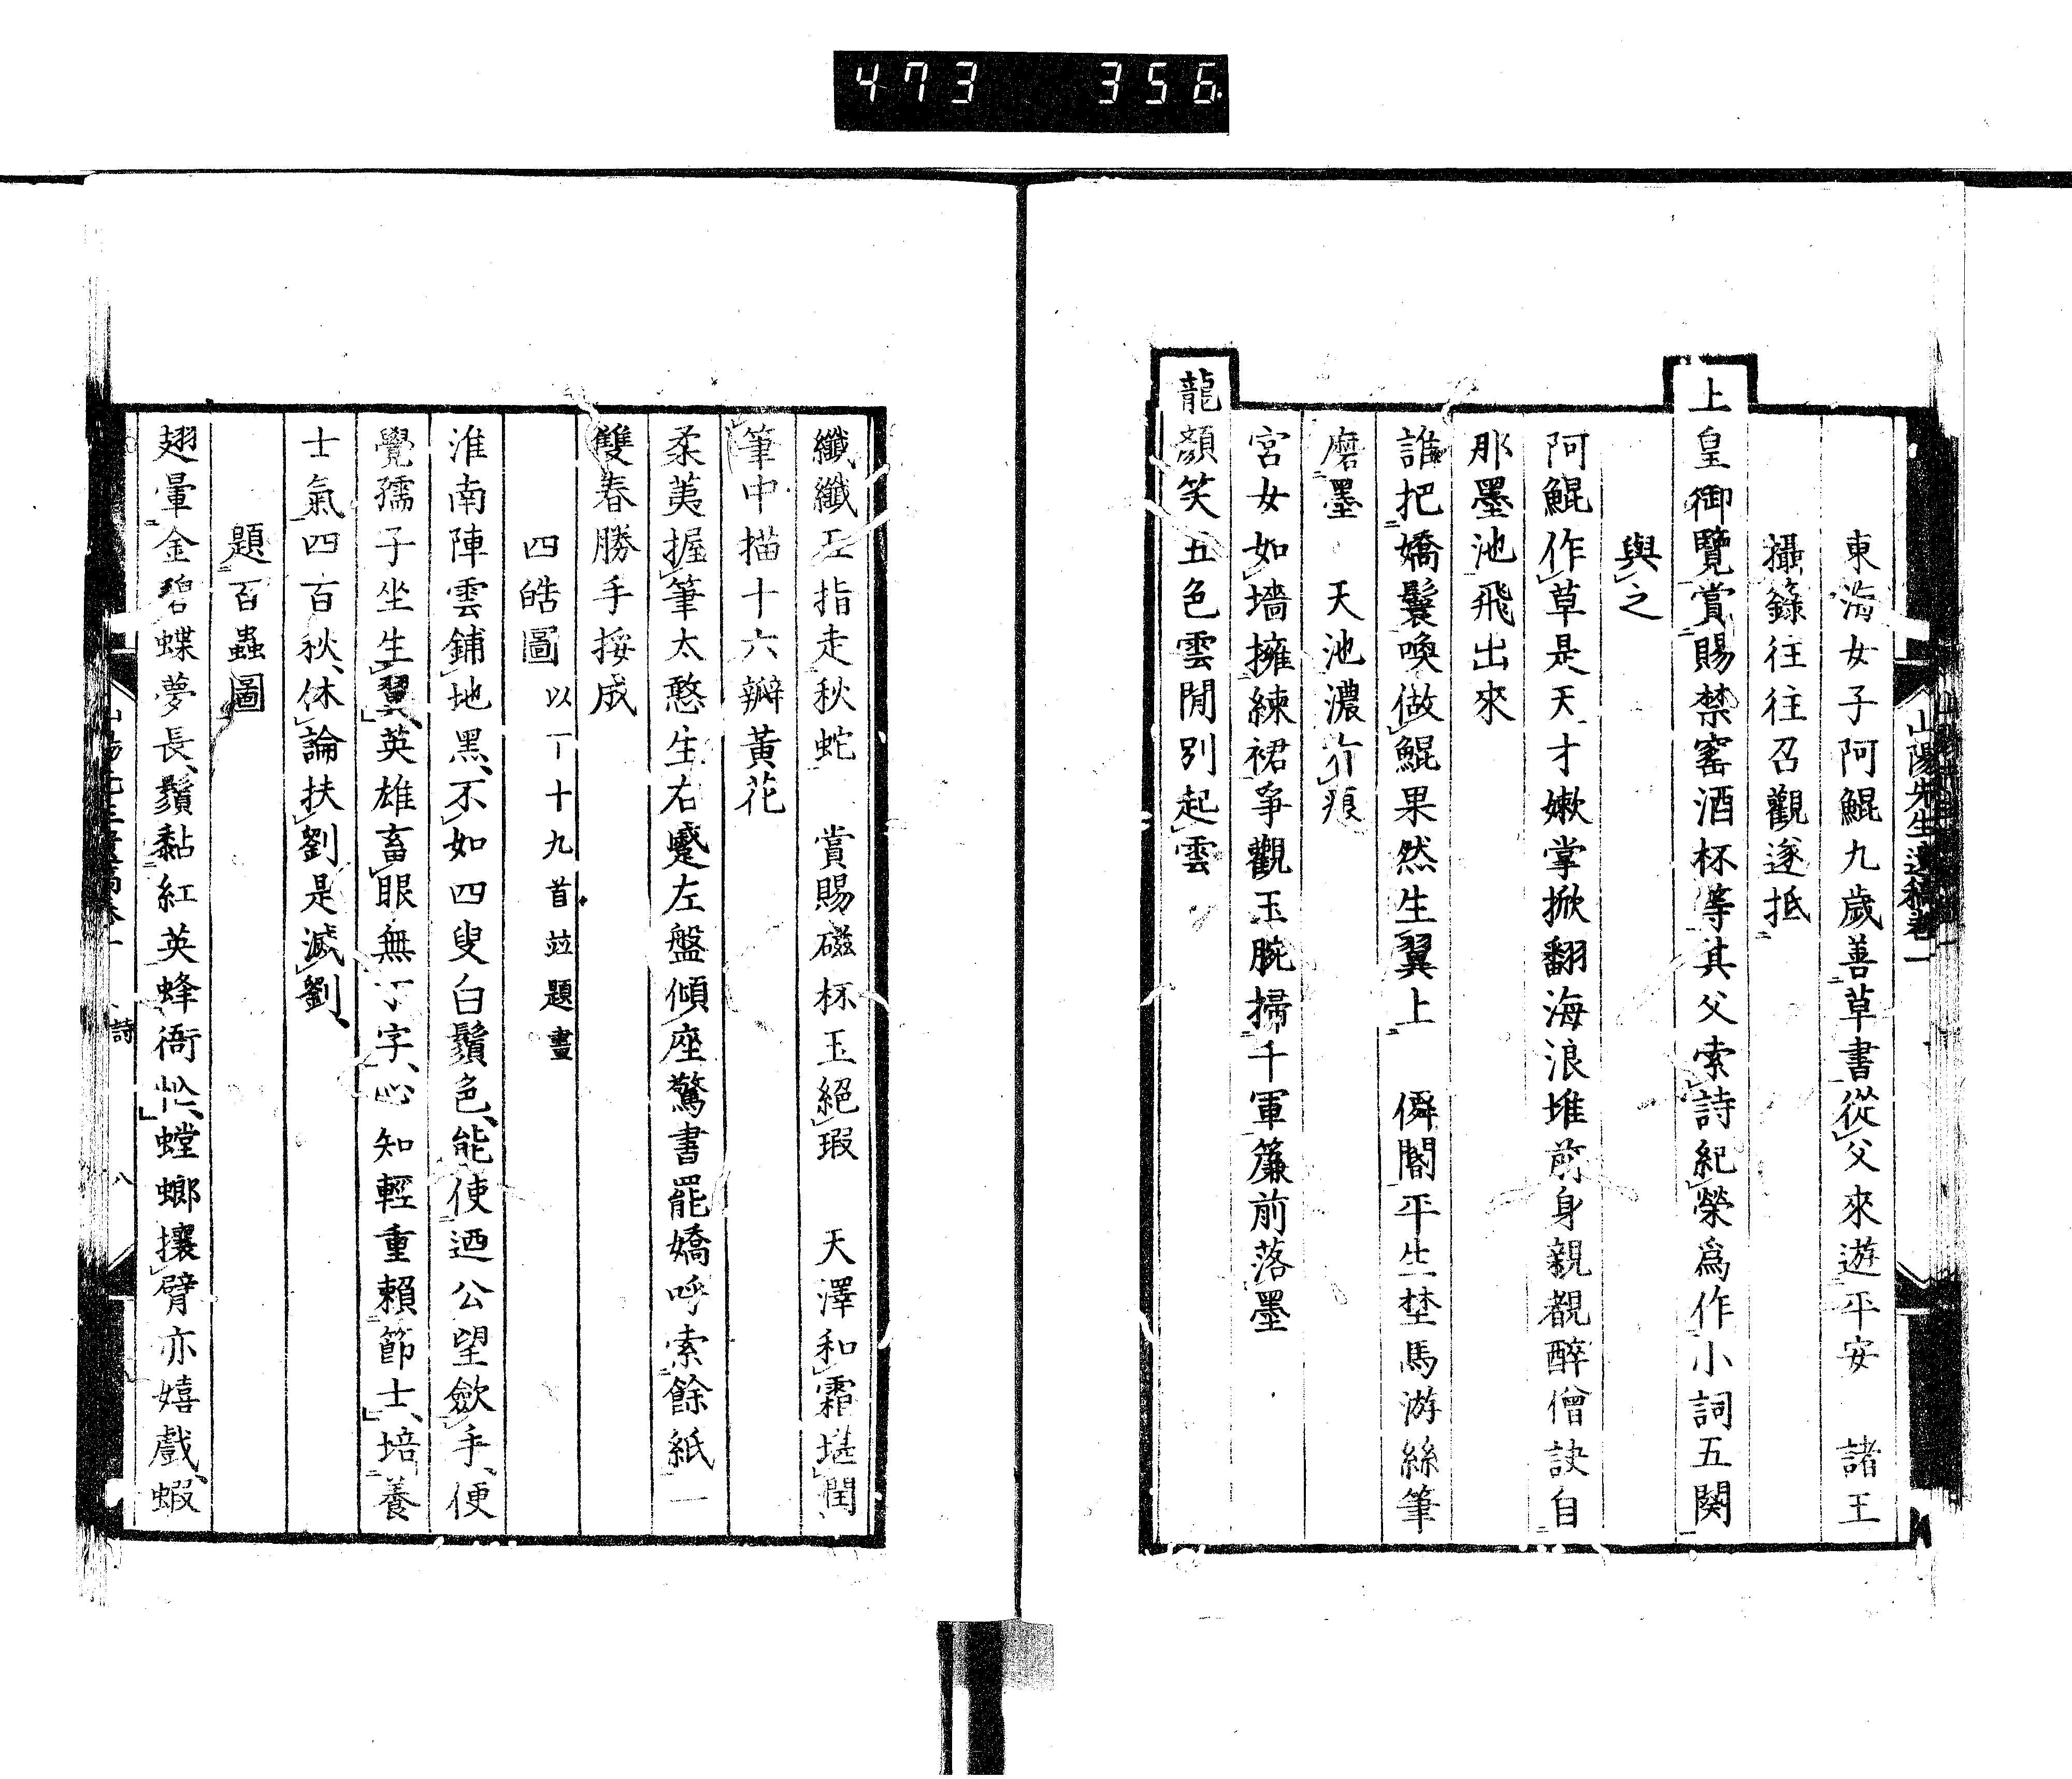 473 356
山陽先生遺稿卷一
東海女子阿鯤九歲善草書從父來遊平安 諸王
攝籙往往召觀遂抵
上皇御覽賞賜禁窰酒杯等其父索詩紀榮爲作小詞五闋
與之
阿鯤作草是天才嫩掌掀翻海浪堆前身親覩醉僧訣自
那墨池飛出來
誰把嬌鬟喚做鯤果然生翼上 僊閽平生埜馬游絲筆
磨墨 天池濃介痕
宮女如墻擁練裙爭觀玉腕掃千軍簾前落墨
龍顏笑五色雲閒別起雲
纖纖玉指走秋蛇 賞賜磁杯玉絕瑕 天澤和霜堪潤
筆中描十六瓣黃花
柔荑握筆太憨生右蹙左盤傾座驚書罷嬌呼索餘紙一
雙春勝手挼成
四皓圖 以下十九首竝題畫
淮南陣雲鋪地黑、不如四叟白鬚色、能使迺公望歛手、便
覺孺子坐生翼、英雄畜眼無丁字、心知輕重賴節士、培養
士氣四百秋、休論扶劉是滅劉、
題百蟲圖
翅暈金碧蝶夢長、鬚黏紅英蜂衙忙、螳螂攘臂亦嬉戲、蝦
詩 八